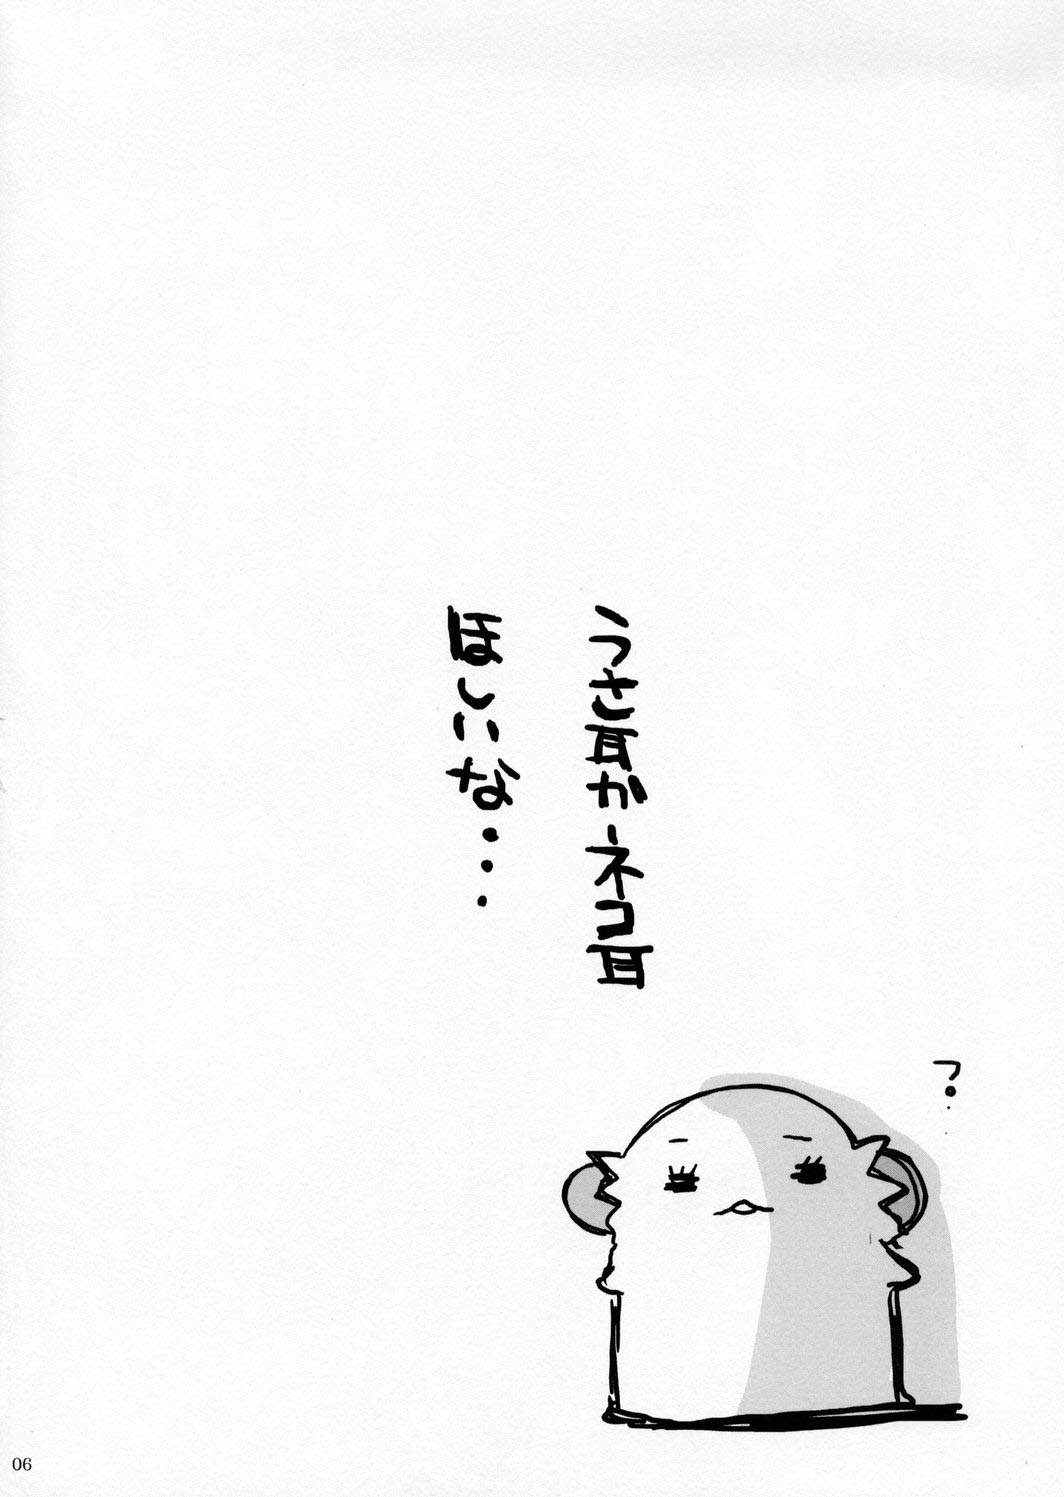 うさ耳かーネコ耳
ほしいな・・・
?
06